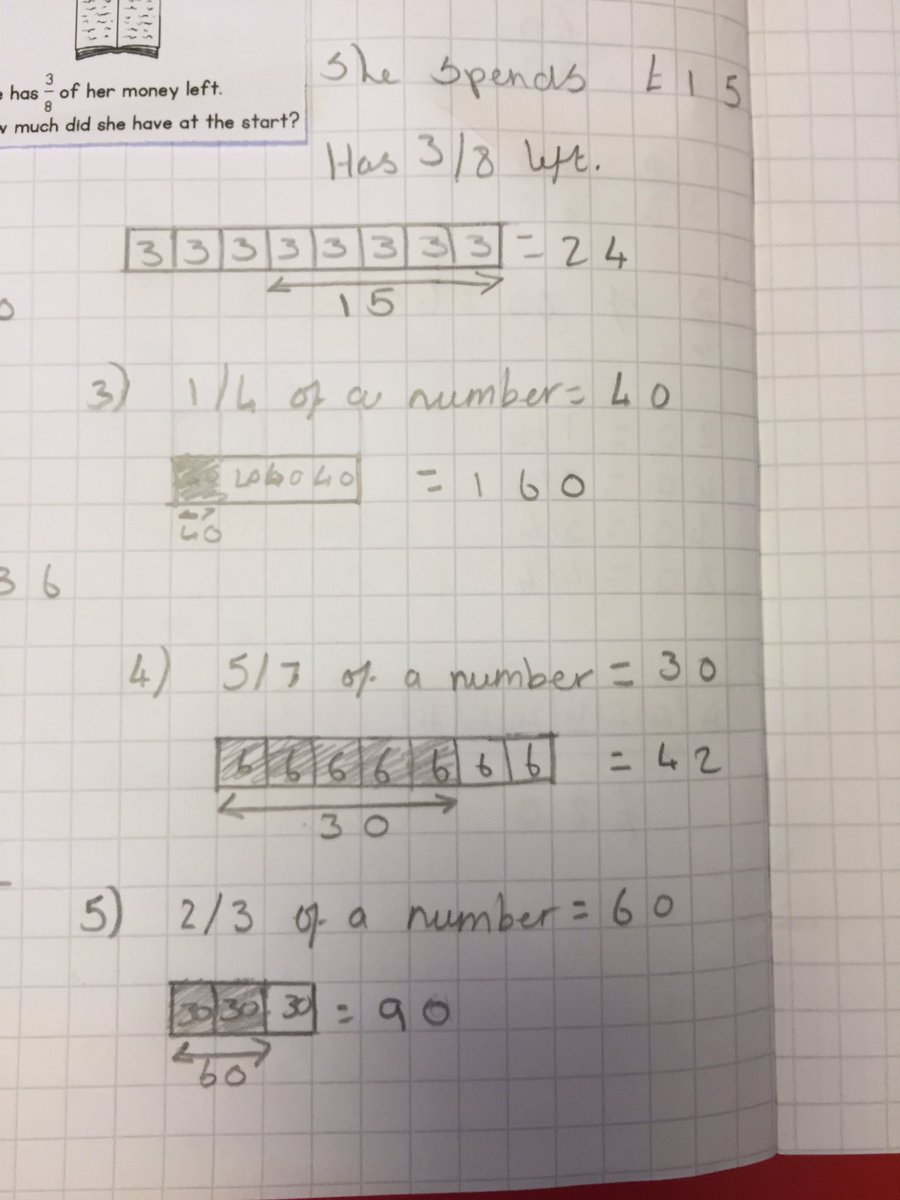 has 3/8 of her money left.
much did she have at the start?
She spends £15
Has 3/8 left.
3 3 3 3 3 3 3 3 = 24
15
3) 1/4 of a number = 40
40 40 40 = 160
40
36
4) 5/7 of a number = 30
6 6 6 6 6 6 6 = 42
30
5) 2/3 of a number = 60
30 30 30 = 90
60